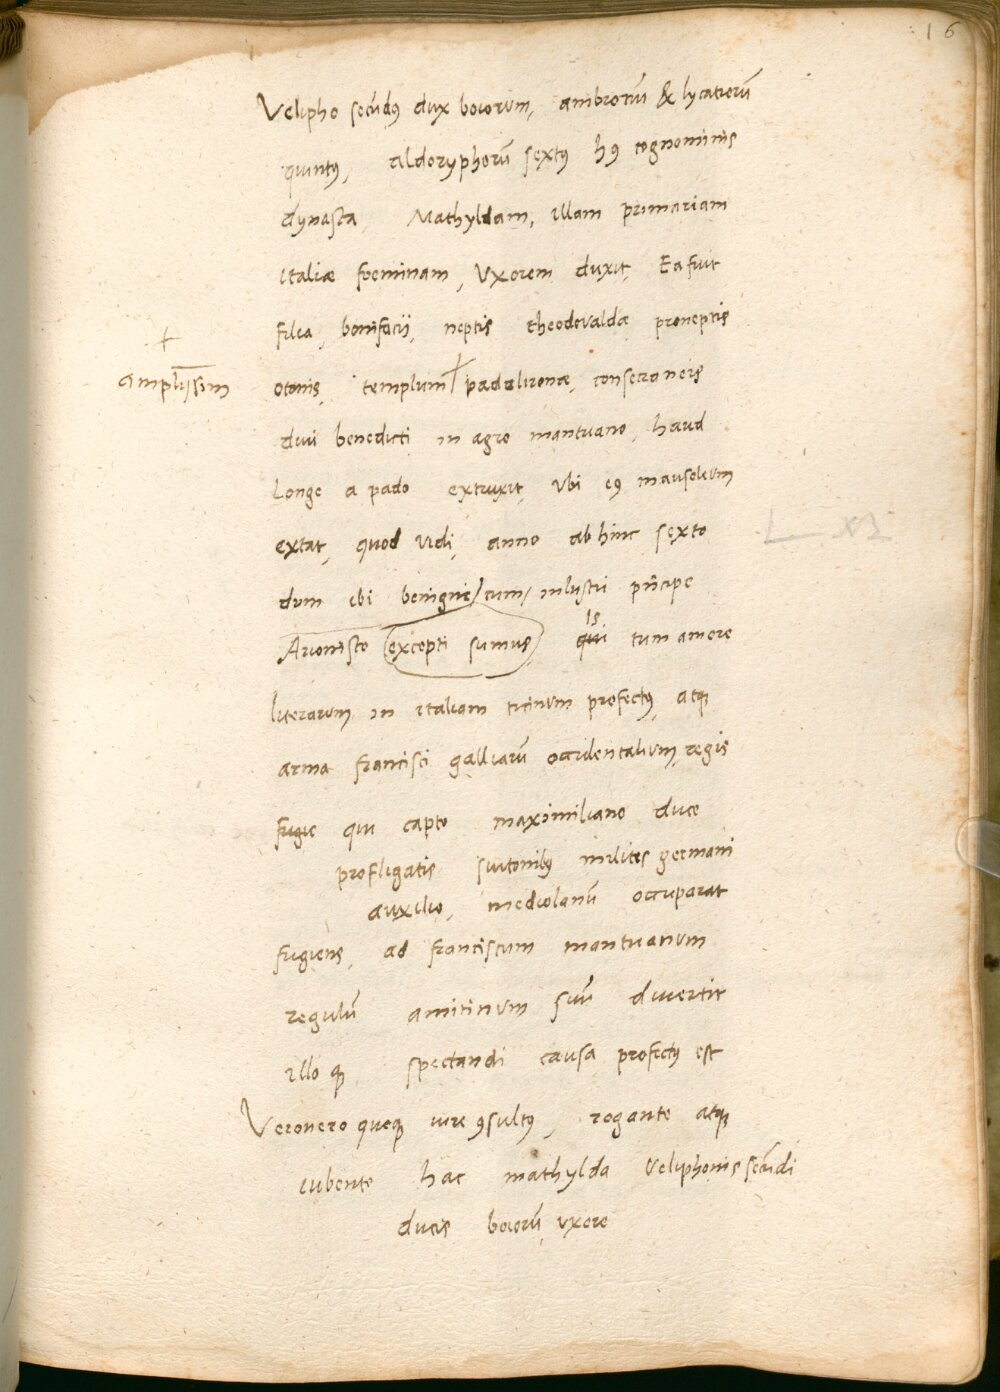 16
Velipho secūdꝰ dux boiorum, ambronū & lycatiorū
quintꝰ, aldoryphorū sextꝰ hꝰ cognominis
dynasta Mathyldam, illam primariam
italiæ foeminam, Vxorem duxit, Ea fuit
filia, bonifacij, neptis theodovaldæ proneptis
+
amplissim̄
otonis, templum padolironæ, consecraneis
divi benedicti in agro mantvano, haud
longe a pado extruxit, Vbi eꝰ mausoleum
extat, quod vidi, anno abhinc sexto
dum ibi benigne / cum / inlustri pn̄cipe
Arionisto excepti sumus is qui tum amore
literarum in italiam ticinum profectꝰ, atqꝫ
arma francisci galliarū occidentalium, regis
fugie qui capto maximiliano duce
profligatis suitonibꝰ milites germani
auxilio, mediolanū occuparat
fugiens, ad franciscum mantuanum
regulū amitinum suū divertit
illo qꝫ spectandi causa profectꝰ est
Veronero queqꝫ iure ꝯsultꝰ, rogante atqꝫ
iubente hac mathylda Veliphonis secūdi
ducis boiorū uxore